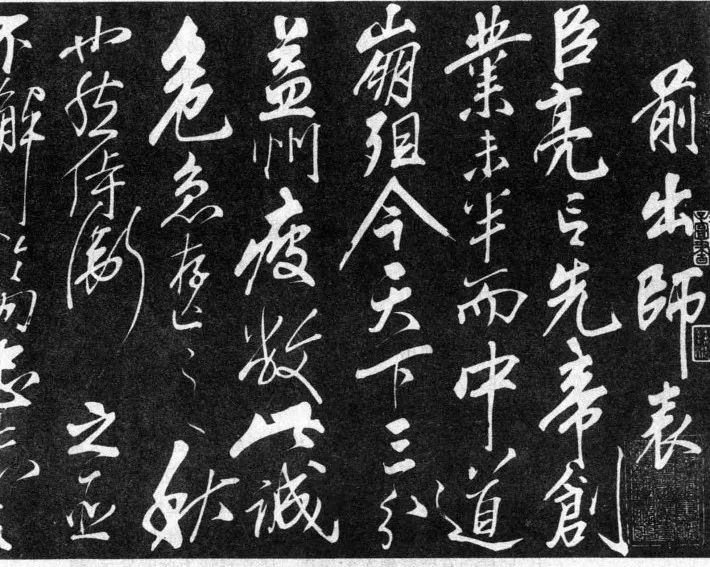 前出師表
臣亮言先帝創
業未半而中道
崩殂今天下三分
益州疲敝此誠
危急存亡之秋
也然侍衛之臣
不懈於內忠